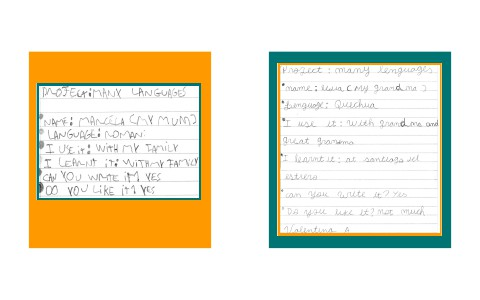 PROJECT: MANY LANGUAGES
NAME: MARCELA (MY MUM)
LANGUAGE: ROMANI
I USE IT: WITH MY FAMILY
I LEARNT IT: WITH MY FAMILY
CAN YOU WRITE IT? YES
DO YOU LIKE IT? YES
Project: many lenguages
name: (my grandma)
Lenguage: Quechua
I use it: with grandma and
great grandma
I learnt it: at santiago del
estero
can you write it? Yes
Do you like it? not much
Valentina A